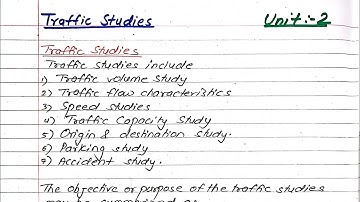 Traffic Studies
Unit:-2
Traffic Studies
Traffic studies include
1) Traffic volume study
2) Traffic flow characteristics
3) Speed studies
4) Traffic Capacity Study
5) Origin & destination study.
6) Parking study
7) Accident study.
The objective or purpose of the traffic studies
may be summarised as